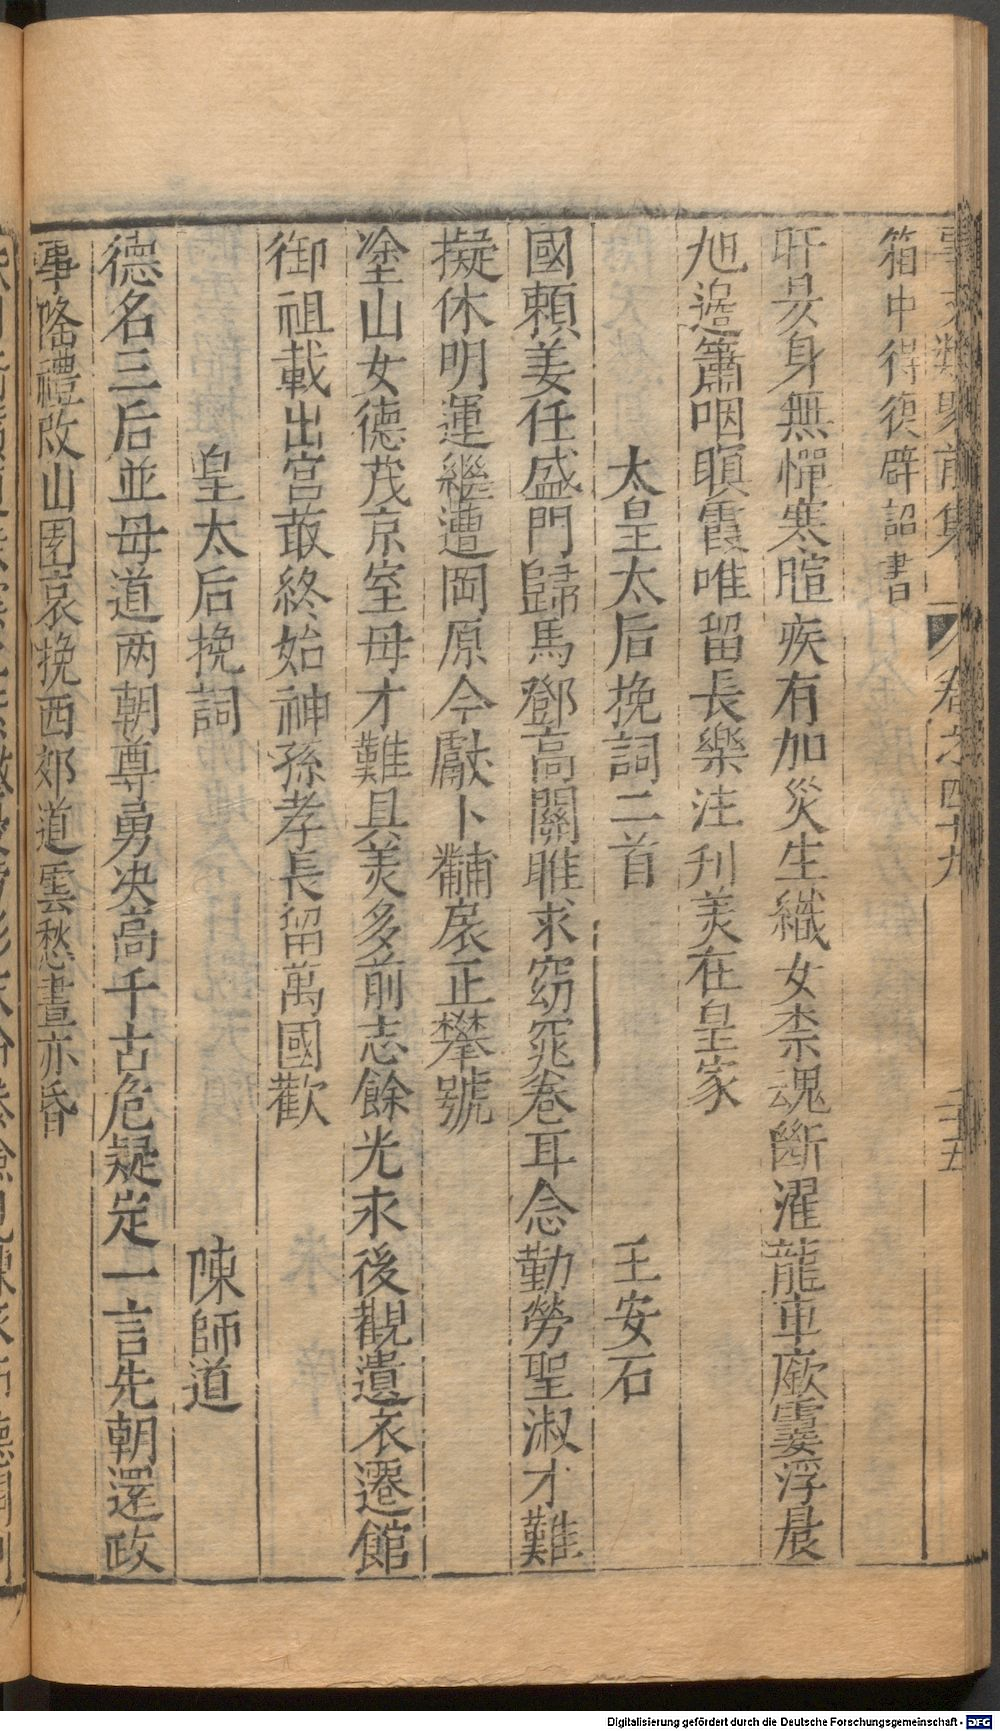 事文類聚前集 卷之四十九 二五
箱中得復辟詔書
旰昃身無憚寒暄疾有加災生織女柰魂斷濯龍車厥霎浮晨
旭邉簫咽瞑霞唯留長樂注刋美在皇家
太皇太后挽詞二首 王安石
國賴姜任盛門歸馬鄧高關雎求窈窕卷耳念勤勞聖淑才難
擬休明運繼遭岡原今獻卜黼扆正攀號
塗山女德茂京室母才難具美多前志餘光永後觀遺衣遷館
御祖載出宫敢終始神孫孝長留萬國歡
皇太后挽詞 陳師道
德名三后並母道两朝尊勇决高千古危疑定一言先朝還政
事隆禮改山園哀挽西郊道雲愁晝亦昏
Digitalisierung gefördert durch die Deutsche Forschungsgemeinschaft - DFG